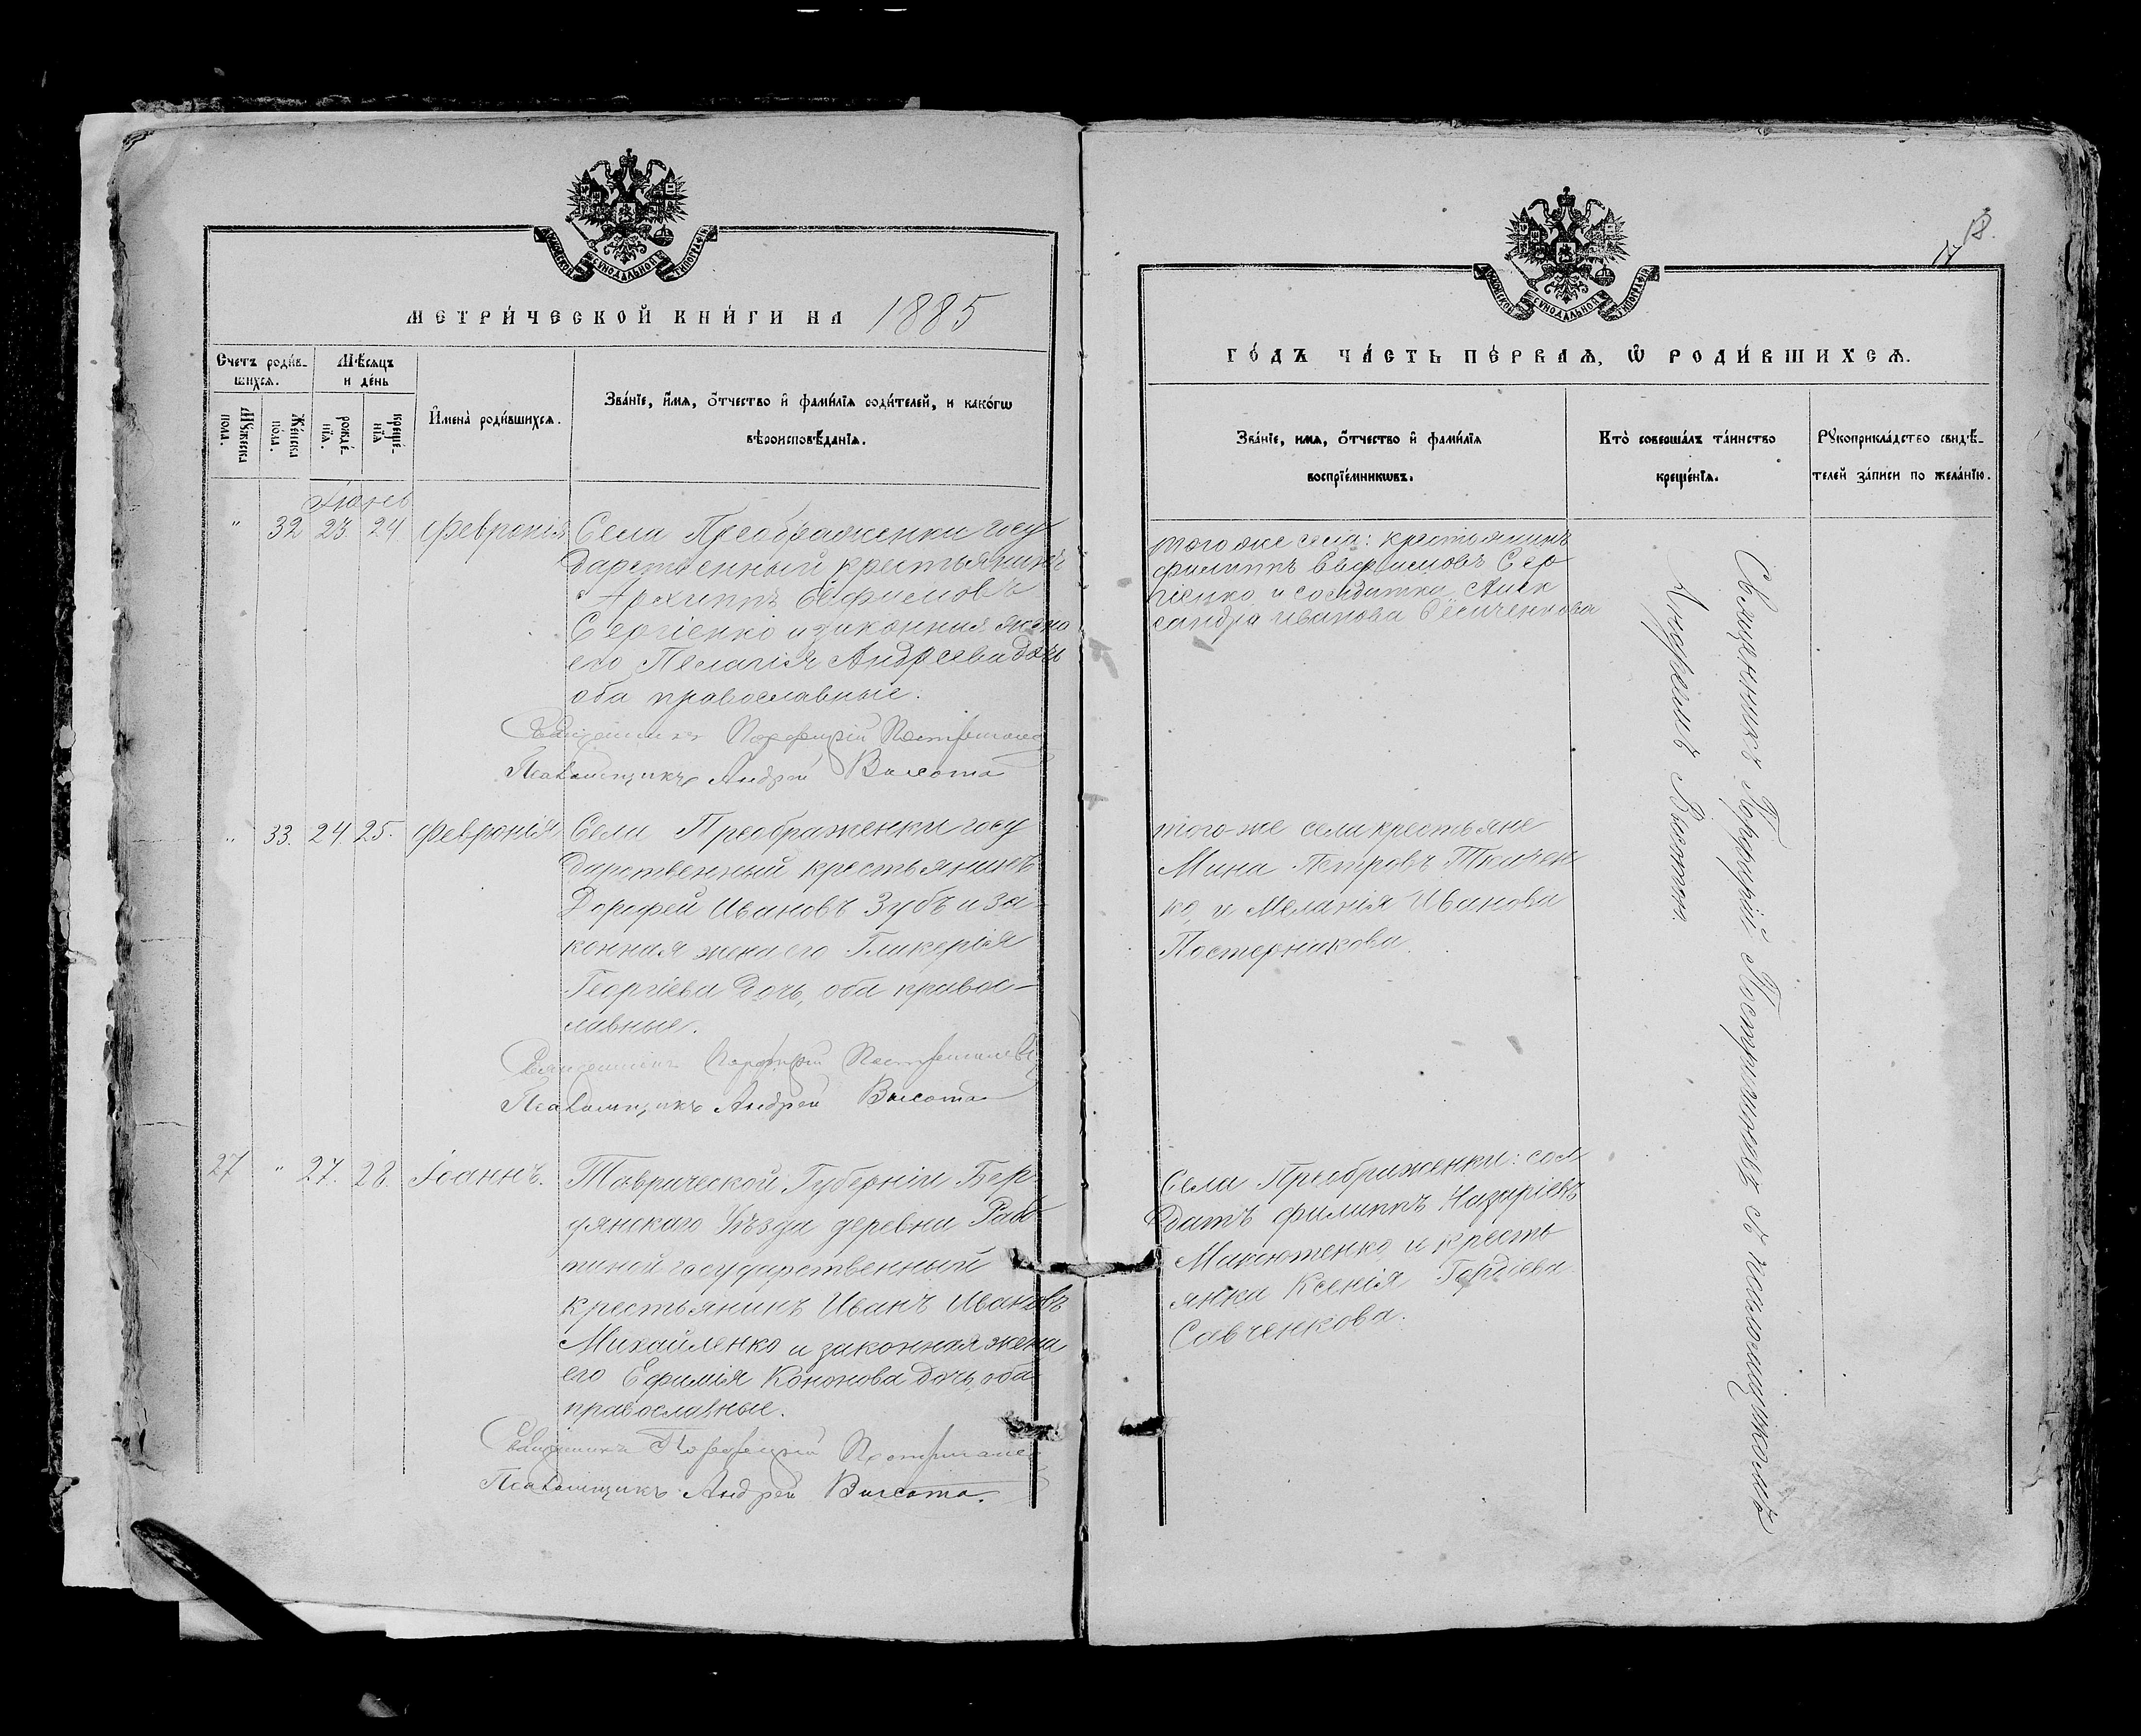 МОСКОВСКОЙ СУНОДАЛЬНОЙ ТИПОГРАФІИ
МЕТРИ́ЧЕСКОЙ КНИ́ГИ НА 1885
Счетъ роди́в-
шихся.
Мѣсяцъ
и де́нь
Му́жеска
пола.
Же́нска
по́ла.
рожде́-
нїя.
креще́-
нїя
И҆мена̀ роди́вшихся.
Зва́нїе, и҆́мя, ѻ҆́тчество и҆ фами́лїя роди́телей, и како́гѡ
вѣроисповѣ́данїя.
Іюнь
" 32 23. 24 Февронія Села Преображенки госу
дарственный крестьянинъ
Архиппъ Евфимовъ
Сергіенко и законная жена
его Пелагія Андреева дочь
оба православные.
Священникъ Порфирій
Псаломщикъ Андрей Высота
" 33. 24. 25. Февронія Села Преображенки госу
дарственный крестьянинъ
Дорофей Ивановъ Зубъ и за-
конная жена его Гликерія
Георгіева дочь, оба правос-
лавные.
Священникъ Порфирій
Псаломщикъ Андрей Высота
27 " 27. 28. Іоаннъ. Таврической Губерніи Бер-
дянскаго Уѣзда деревни
государственный
крестьянинъ Иванъ Ивановъ
Михайленко и законная жена
его Ефимія Кононова дочь, оба
православные.
Священникъ Порфирій
Псаломщикъ Андрей Высота.
18.
17
МОСКОВСКОЙ СУНОДАЛЬНОЙ ТИПОГРАФІИ
ГО́ДЪ ЧА́СТЬ ПЕ́РВАЯ, Ѡ҆ РОДИ́ВШИХСЯ.
Зва́нїе, имя, ѻ҆́тчество и҆ фами́лїя
воспрїе́мникѡвъ.
Кто̀ соверша́лъ та́инство
креще́нїя.
Рꙋкоприкла́дство свидѣ́-
телей за́писи по жела́нїю.
того же села: крестьянинъ
Филиппъ Евфимовъ Сер
гіенко и солдатка Алек
сандра Иванова
того-же села крестьяне
Мина Петровъ Ткачен
ко, и Меланія Иванова
Постерникова.
Села Преображенки: сол
датъ Филиппъ Назаріевъ
Максютенко и кресть
янка Ксенія Гордіева
Савченкова.
Священникъ Порфирій съ псаломщикомъ
Андреемъ Высотою.